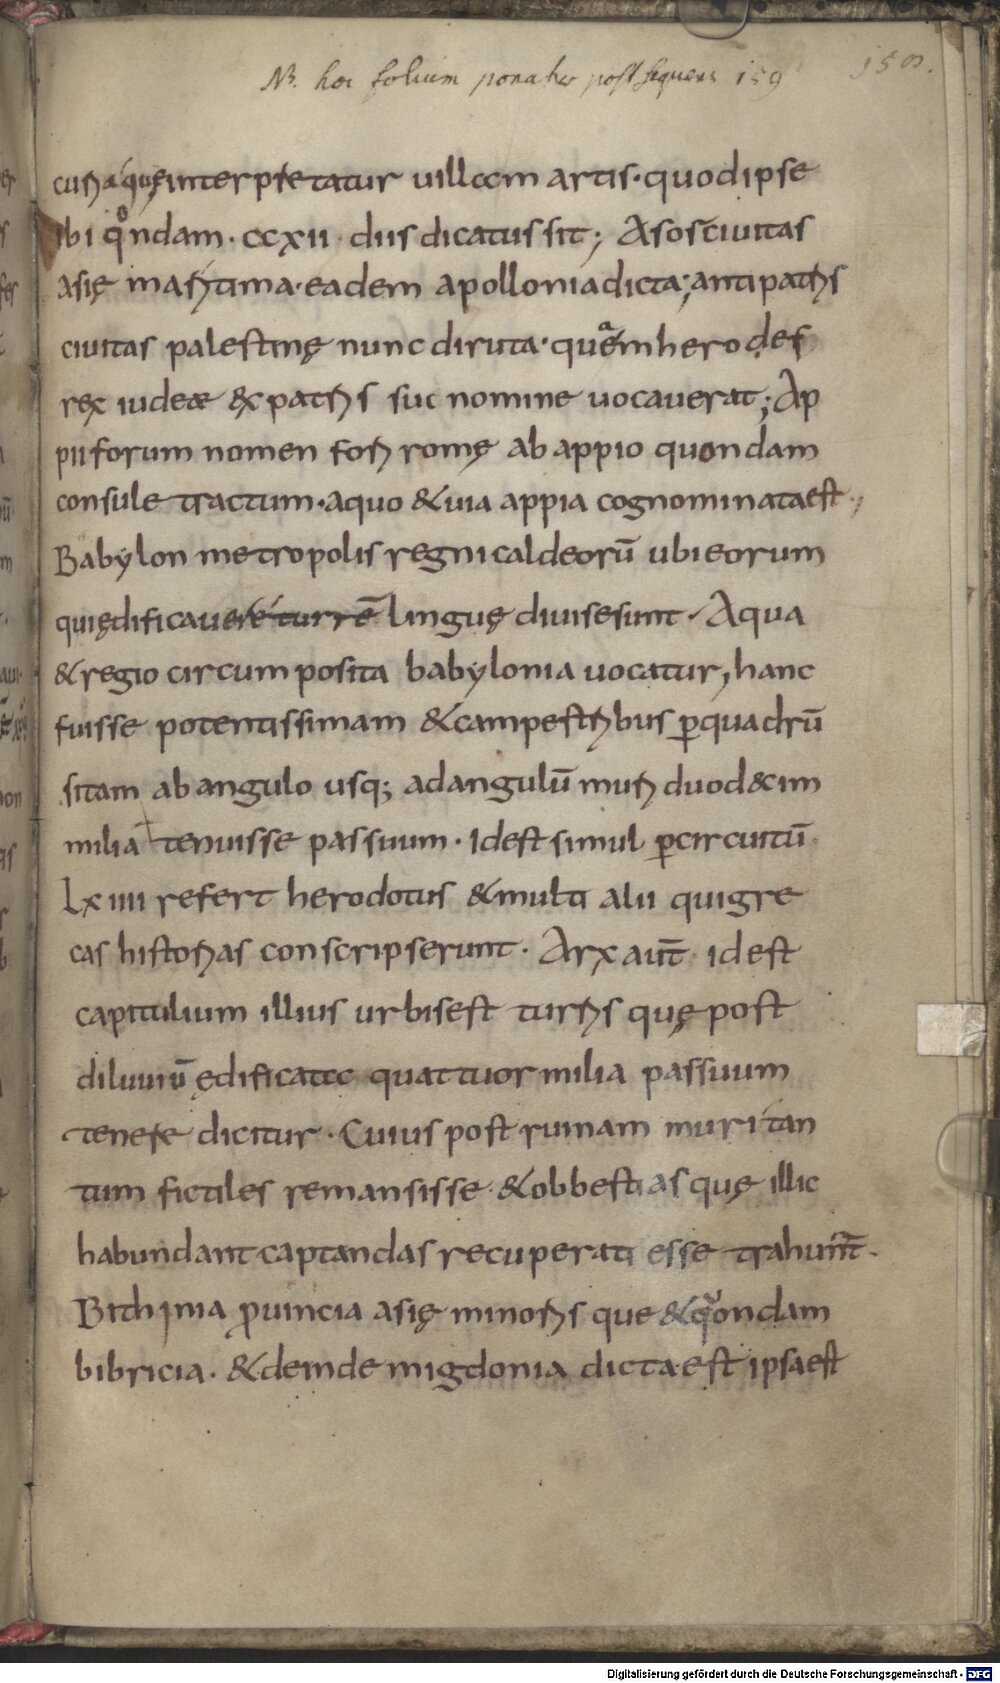 NB. hoc folium ponatur post sequens 159
158.
curį aquę interpretatur uillam artis· quod ipse
ibi qͦndam· ccxii· diis dicatus sit; Asos ciuitas
asię maritima· eadem apollonia dicta; antipatris
ciuitas palestinę nunc diruta· quam herodes
rex iudeæ &xpatris sui nomine uocauerat; Ap
pii forum nomen fori romę ab appio quondam
consule tractum· aquo & uia appia cognominata est·,
Babylon metropolis regni caldeorū ubi eorum
qui ędificauere turrē linguę diuise sunt· Aqua
& regio circum posita babylonia uocatur, hanc
fuisse potentissimam & campestribus p̱ quadrū
sitam ab angulo usq; ad angulū muri duod&cim
milia tenuisse passuum· Id est simul p̱ circuitū·
Lxiiii refert herodotus & multi alii qui gre
cas historias conscripserunt· Arx aut̄ id est
capitulium illius urbis est turris quę post
diluuiū ędificata quattuor milia passuum
tenere dicitur· Cuius post ruinam muri tan
tum fictiles remansisse & ob bestias quę illic
habundant captandas recuperati esse trahunt̄·
Bithinia prouincia asię minoris que & quondam
bibricia· & deinde migdonia dicta est ipsa est
Digitalisierung gefördert durch die Deutsche Forschungsgemeinschaft - DFG